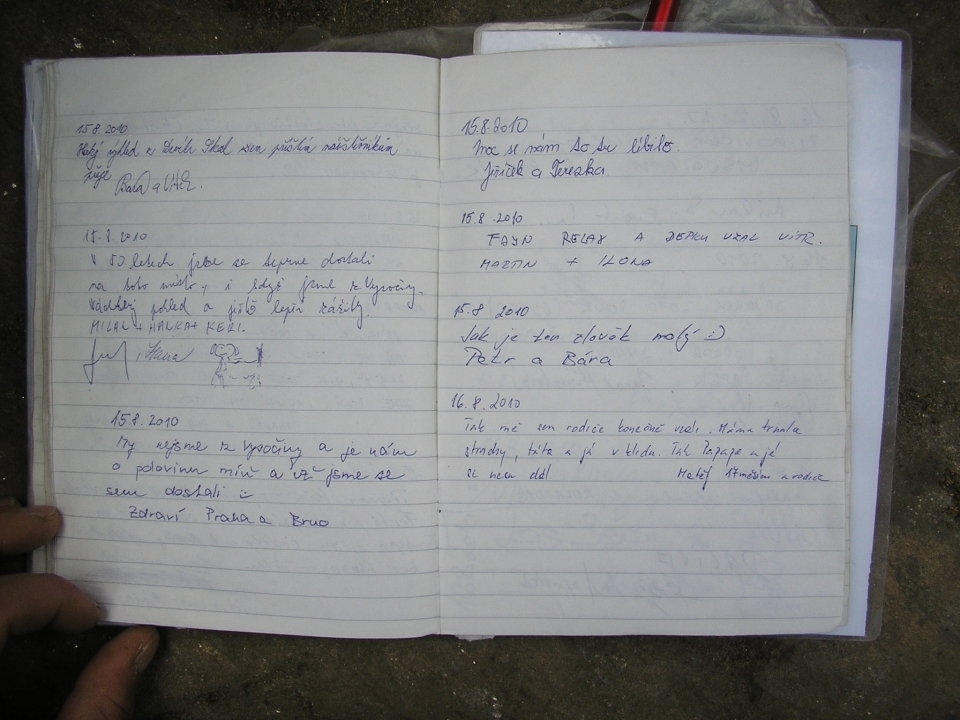 15.8.2010
výhled z Devíti Skal sem příštím návštěvníkům
přeje Bára a Vítek.
15.8.2010
V 50 letech jsme se teprve dostali
na toto místo, i když jsme z Vysočiny.
Nádherný pohled a ještě lepší zážitky.
MILAN + HANKA + KERI.
Hana
15.8.2010
My nejsme z Vysočiny a je nám
o polovinu míň a už jsme se
sem dostali :-
Zdraví Praha a Brno
15.8.2010
Moc se nám to tu líbilo.
Jiříček a Terezka
15.8.2010
FAJN RELAX A DEPKU VZAL VÍTR.
MARTIN + ILONA
15.8 2010
Jak je ten člověk malý :-)
Petr a Bára
16.8.2010
Tak mě sem rodiče konečně vzali. Máma trnula
strachy, táta a já v klidu. Tak Papapa a já
se nem dál. Matěj 17měsíční a rodiče